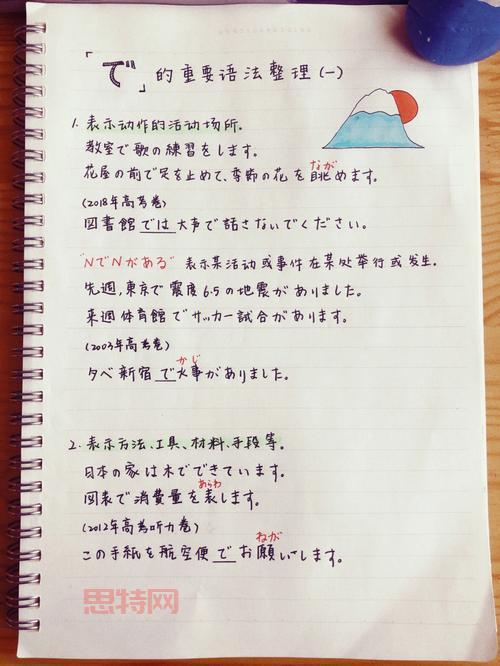 「で」的重要语法整理(一)
1. 表示动作的活动场所。
教室で歌の練習をします。
なが
花屋の前で足を止めて、季節の花を眺めます。
(2018年高考卷)
図書館では大声で話さないでください。
"NでNがある" 表示某活动或事件在某处举行或发生.
先週,東京で震度6.5の地震がありました。
来週体育館でサッカー試合があります。
(2003年高考卷)
かじ
夕べ新宿で火事がありました。
2. 表示方法、工具、材料、手段等。
日本の家は木でできています。
あらわ
図表で消費量を表します。
(2012年高考听力卷)
ねが
この手紙を航空便でお願いします。
思特网